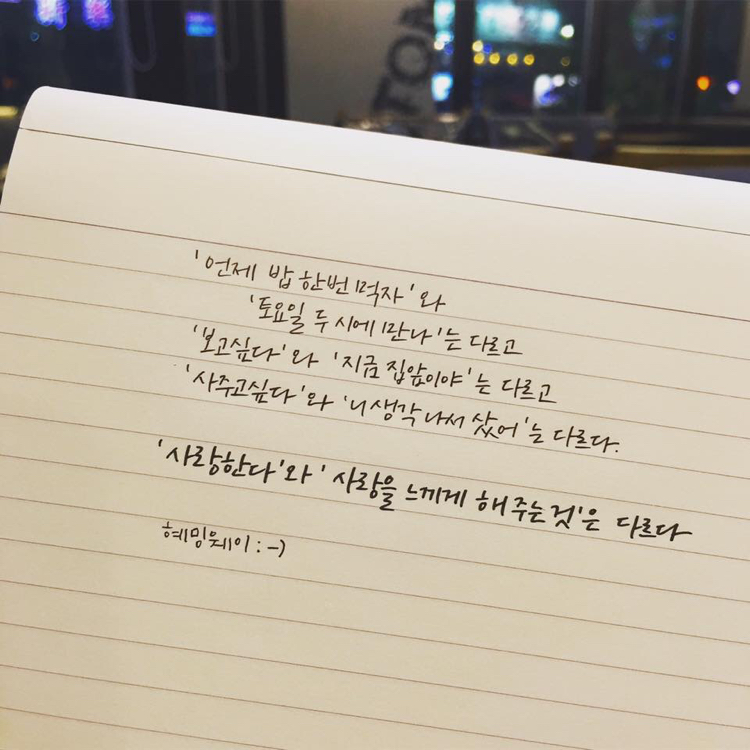 TON
'언제 밥 한번 먹자'와
'토요일 두시에 만나'는 다르고
'보고싶다'와 '지금 집앞이야'는 다르고
'사주고싶다'와 '니 생각 나서 샀어'는 다르다.
'사랑한다'와 '사랑을 느끼게 해 주는것'은 다르다
헤밍웨이 :-)